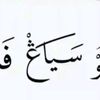 و سَيَاڠْ فَ